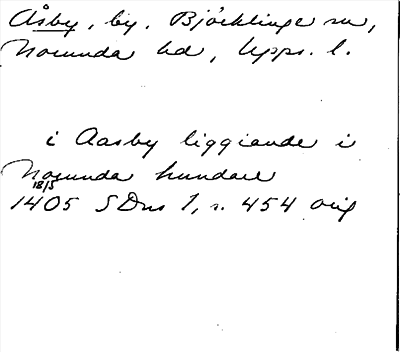 Åsby, by, Björklinge sn,
Norunda hd, Upps. l.
i Aasby liggiande i
Norunda hundare
18/5
1405 SDns 1, s. 454 orig